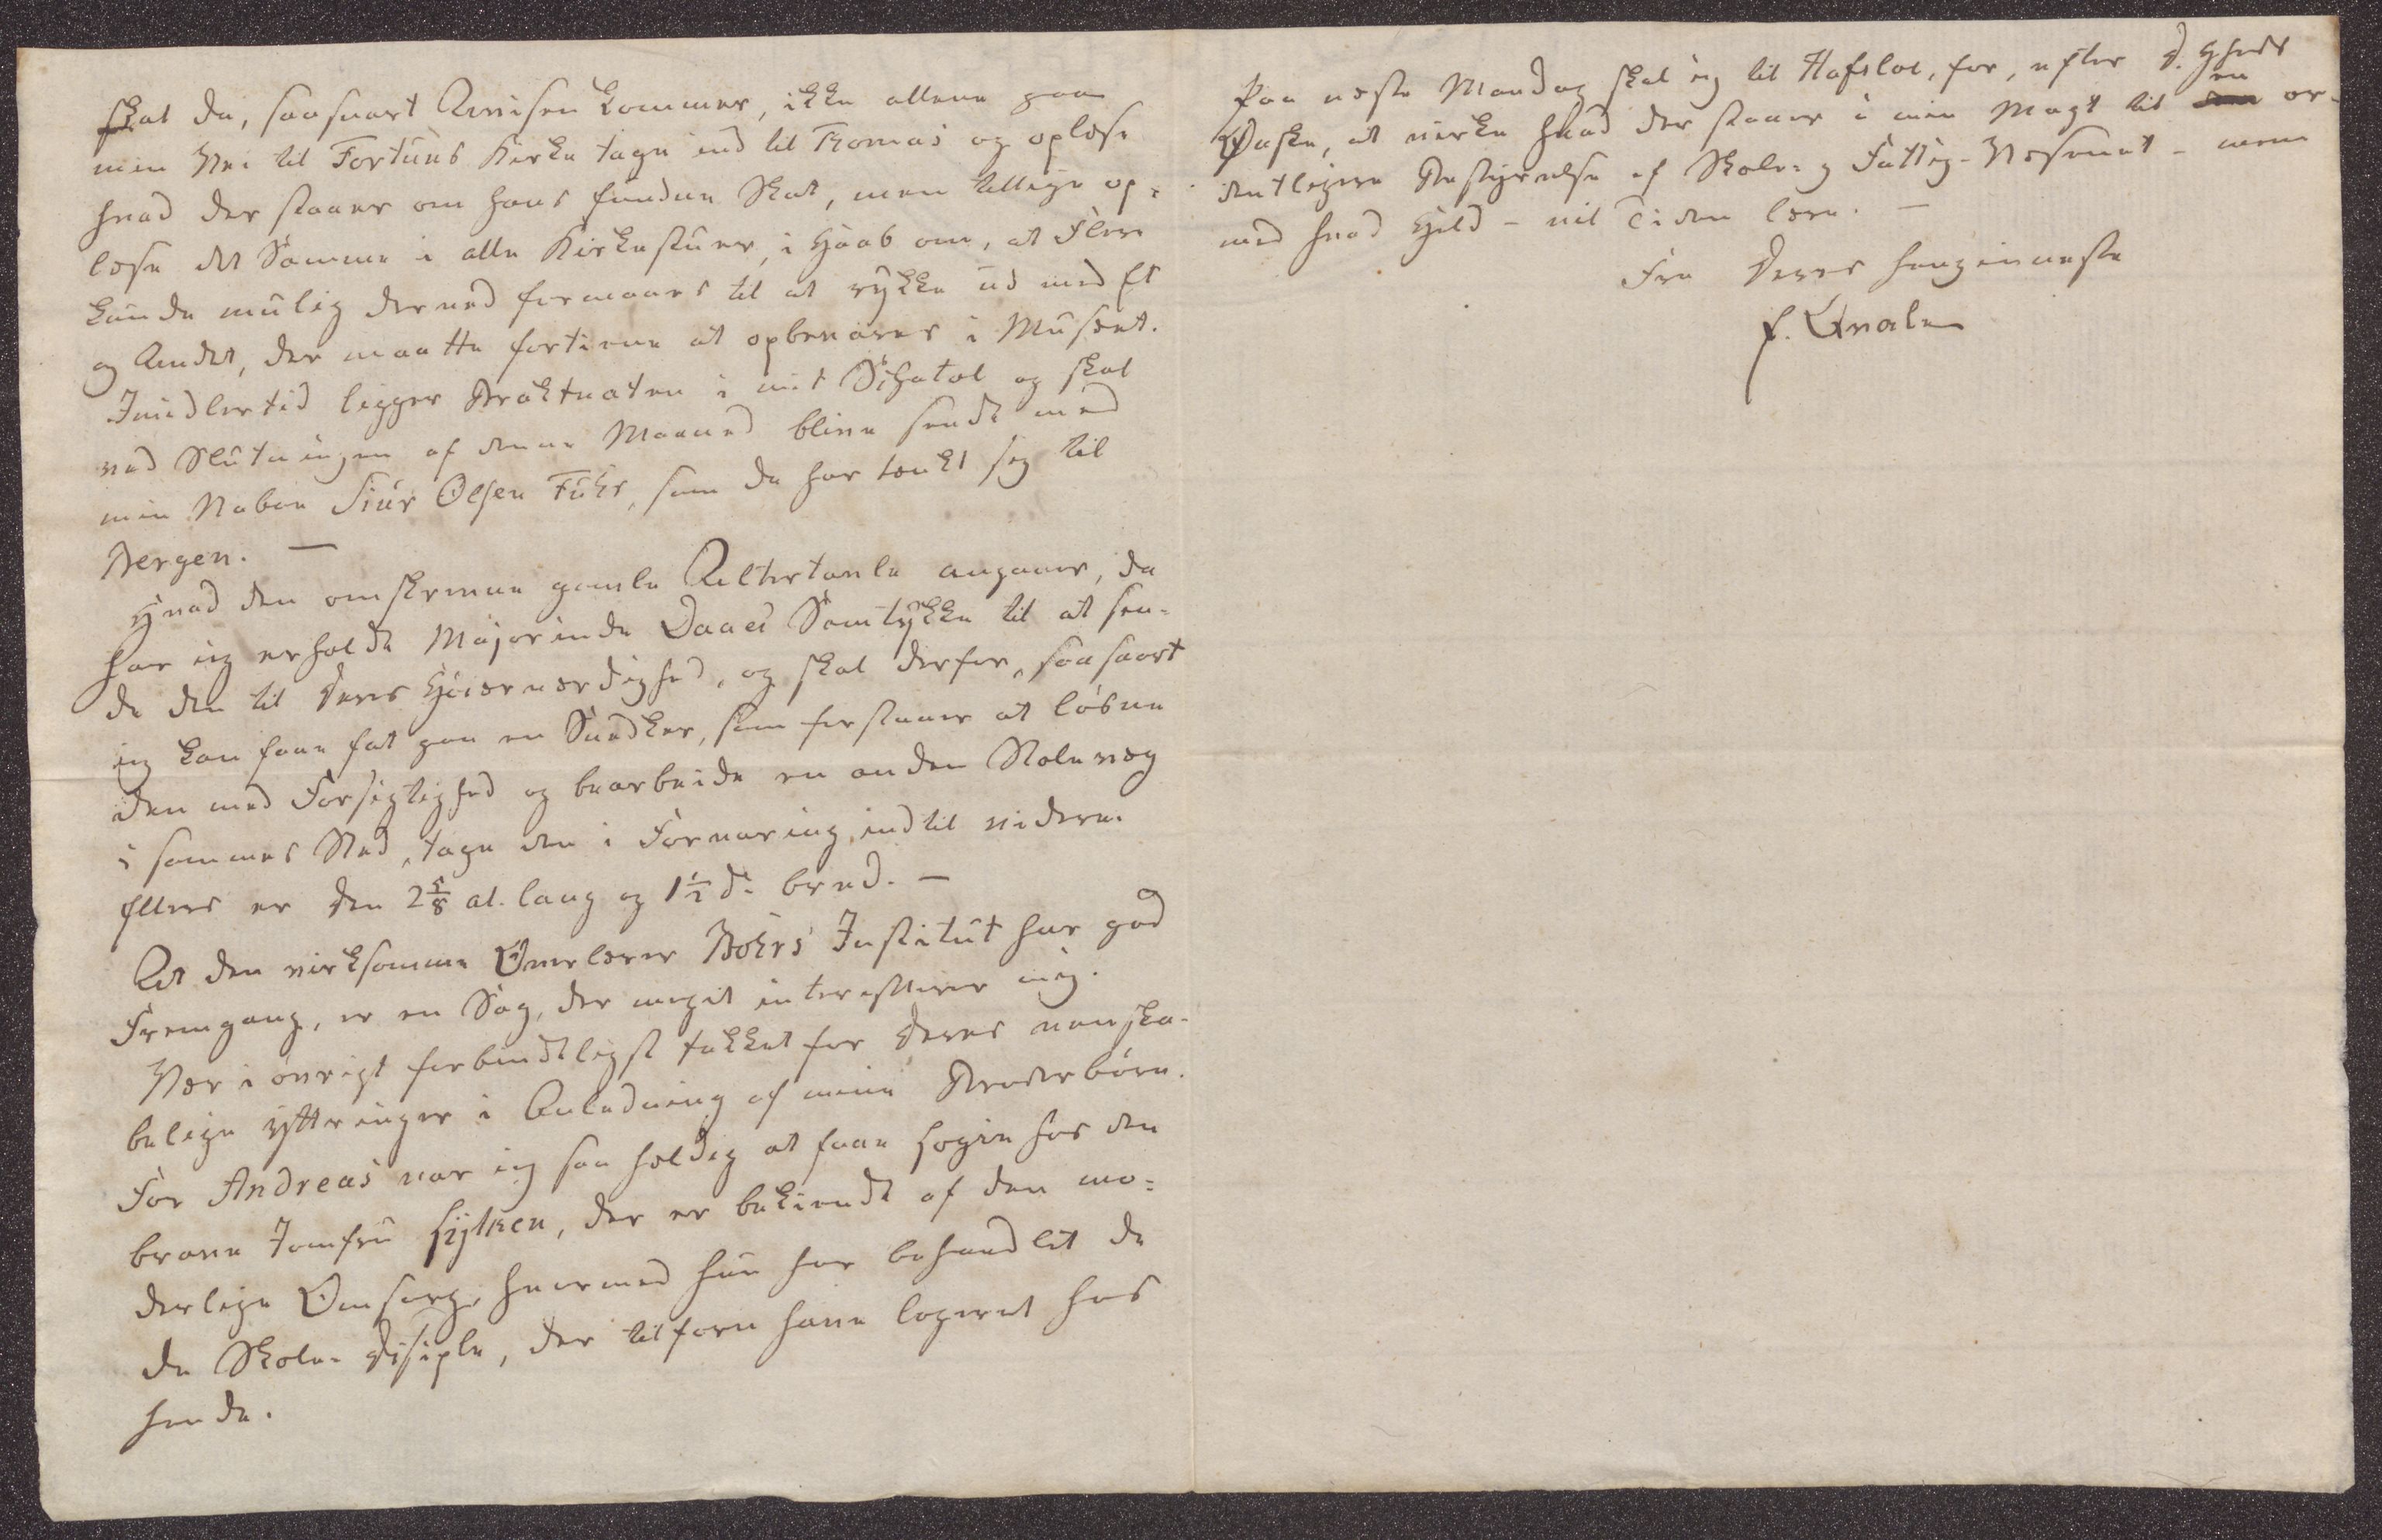 skal da, saasnart Avisen kommer, ikke allene paa
min Vei til Fortuns Kirke tage ind til Thomas og oplæse
hvad der staaer om hans fundne Skat, men tillige op-
læse det Samme i alle Kirkestuer, i Haab om, at Flere
kunde mulig derved formaaes til at rykke ud med Et
og Andet, der maatte fortiene at opbevares i Musæet.
Imidlertid ligger Brakteaten i mit Schatol og skal
ved Slutningen af denne Maaned blive sendt med
min Naboe Siur Olsen Fuhr, som da har tænkt sig til
Bergen. —
Hvad den omskrevne gamle Altertavle angaaer, da
har jeg erholdt Majorinde Daaes Samtykke til at sen-
de den til Deres Høiærværdighed, og skal derfor, saasnart
jeg kan faae fat paa en Snedker, som forstaaer at løsne
den med Forsigtighed og bearbeide en anden Stolevæg
i sammes Sted, tage den i Forvaring indtil videre.
Ellers er den 2 5/8 al. lang og 1 1/2 do bred. —
At den virksomme Overlærer Bohrs Institut har god
Fremgang, er en Sag, der meget interesserer mig.
Vær i øvrigt forbindtligst takket for Deres venska-
belige Yttringer i Anledning af mine Broderbørn.
For Andreas var jeg saa heldig at faae Logie hos den
brave Jomfru Hytken, der er bekiendt af den mo-
derlige Omsorg, hvormed hun har behandlet de
de Skole-Disiple, der tilforn have logeret hos
hende.
Paa næste Mandag skal jeg til Hafsloe, for, efter D. Hheds
Ønske, at virke hvad der staaer i min Magt til en or-
dentligere Bestyrelse af Skole- og Fattig-Væsenet — men
med hvad Held — vil Tiden lære. —
Fra Deres hengivneste
F. Qvale